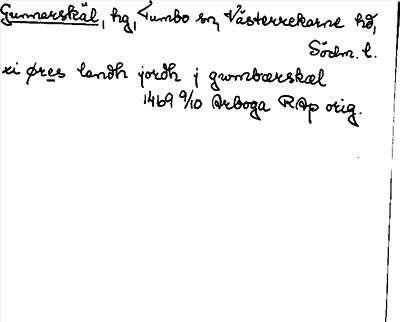 Gunnarskäl, hg, Tumbo sn, Västerrekarne hd,
Södm. l.
xi øres landh jordh j gwmbærskæl
1469 9/10 Arboga RAp orig.